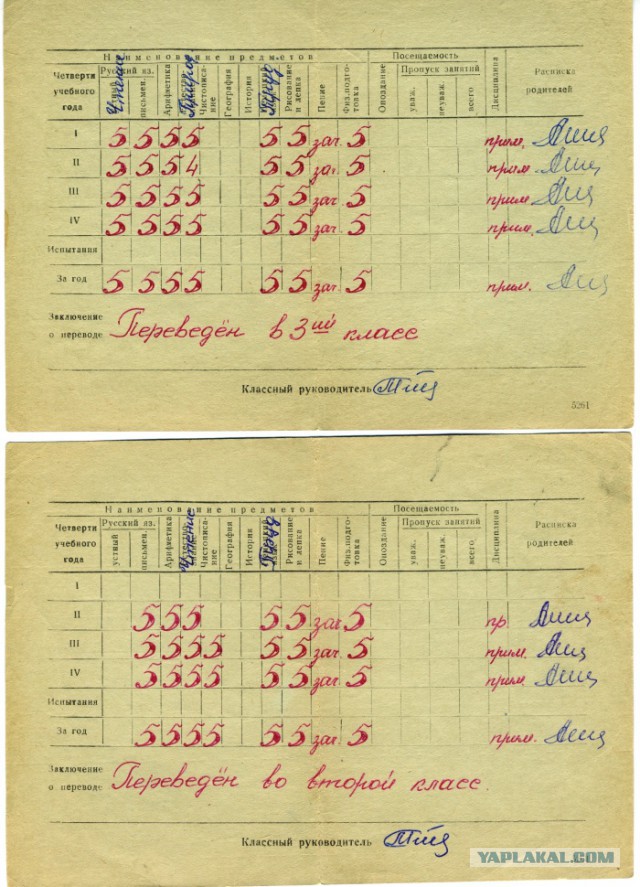 Наименование предметов Посещаемость
Четверти учебного года Русский яз. Чтение письмен. Арифметика Чистописание География История Труд Рисование и лепка Пение Физ.подготовка Опоздание Пропуск занятий уваж. неуваж. всего Дисциплина Расписка родителей
I 5 5 5 5 5 5 зач. 5 прим.
II 5 5 5 4 5 5 зач. 5 прим.
III 5 5 5 5 5 5 зач. 5 прим.
IV 5 5 5 5 5 5 зач. 5 прим.
Испытания
За год 5 5 5 5 5 5 зач. 5 прим.
Заключение о переводе Переведён в 3ий класс
Классный руководитель
5261
Наименование предметов Посещаемость
Четверти учебного года Русский яз. устный письмен. Арифметика Чтение Чистописание География История Труд Рисование и лепка Пение Физ.подготовка Опоздание Пропуск занятий уваж. неуваж. всего Дисциплина Расписка родителей
I
II 5 5 5 5 5 зач. 5 пр.
III 5 5 5 5 5 5 зач. 5 прим.
IV 5 5 5 5 5 5 зач. 5 прим.
Испытания
За год 5 5 5 5 5 5 зач. 5 прим.
Заключение о переводе Переведён во второй класс.
Классный руководитель
YAPLAKAL.COM